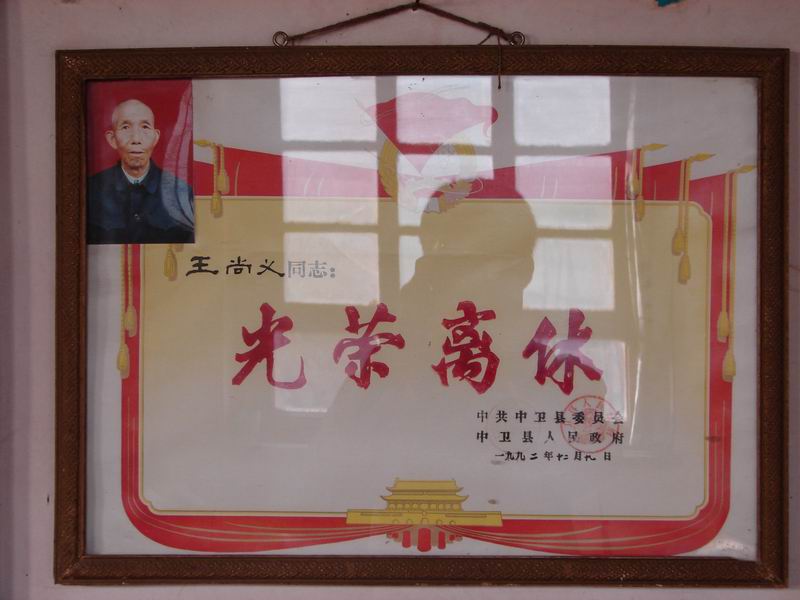 王尚义同志：
光荣离休
中共中卫县委员会
中卫县人民政府
一九九二年十二月九日